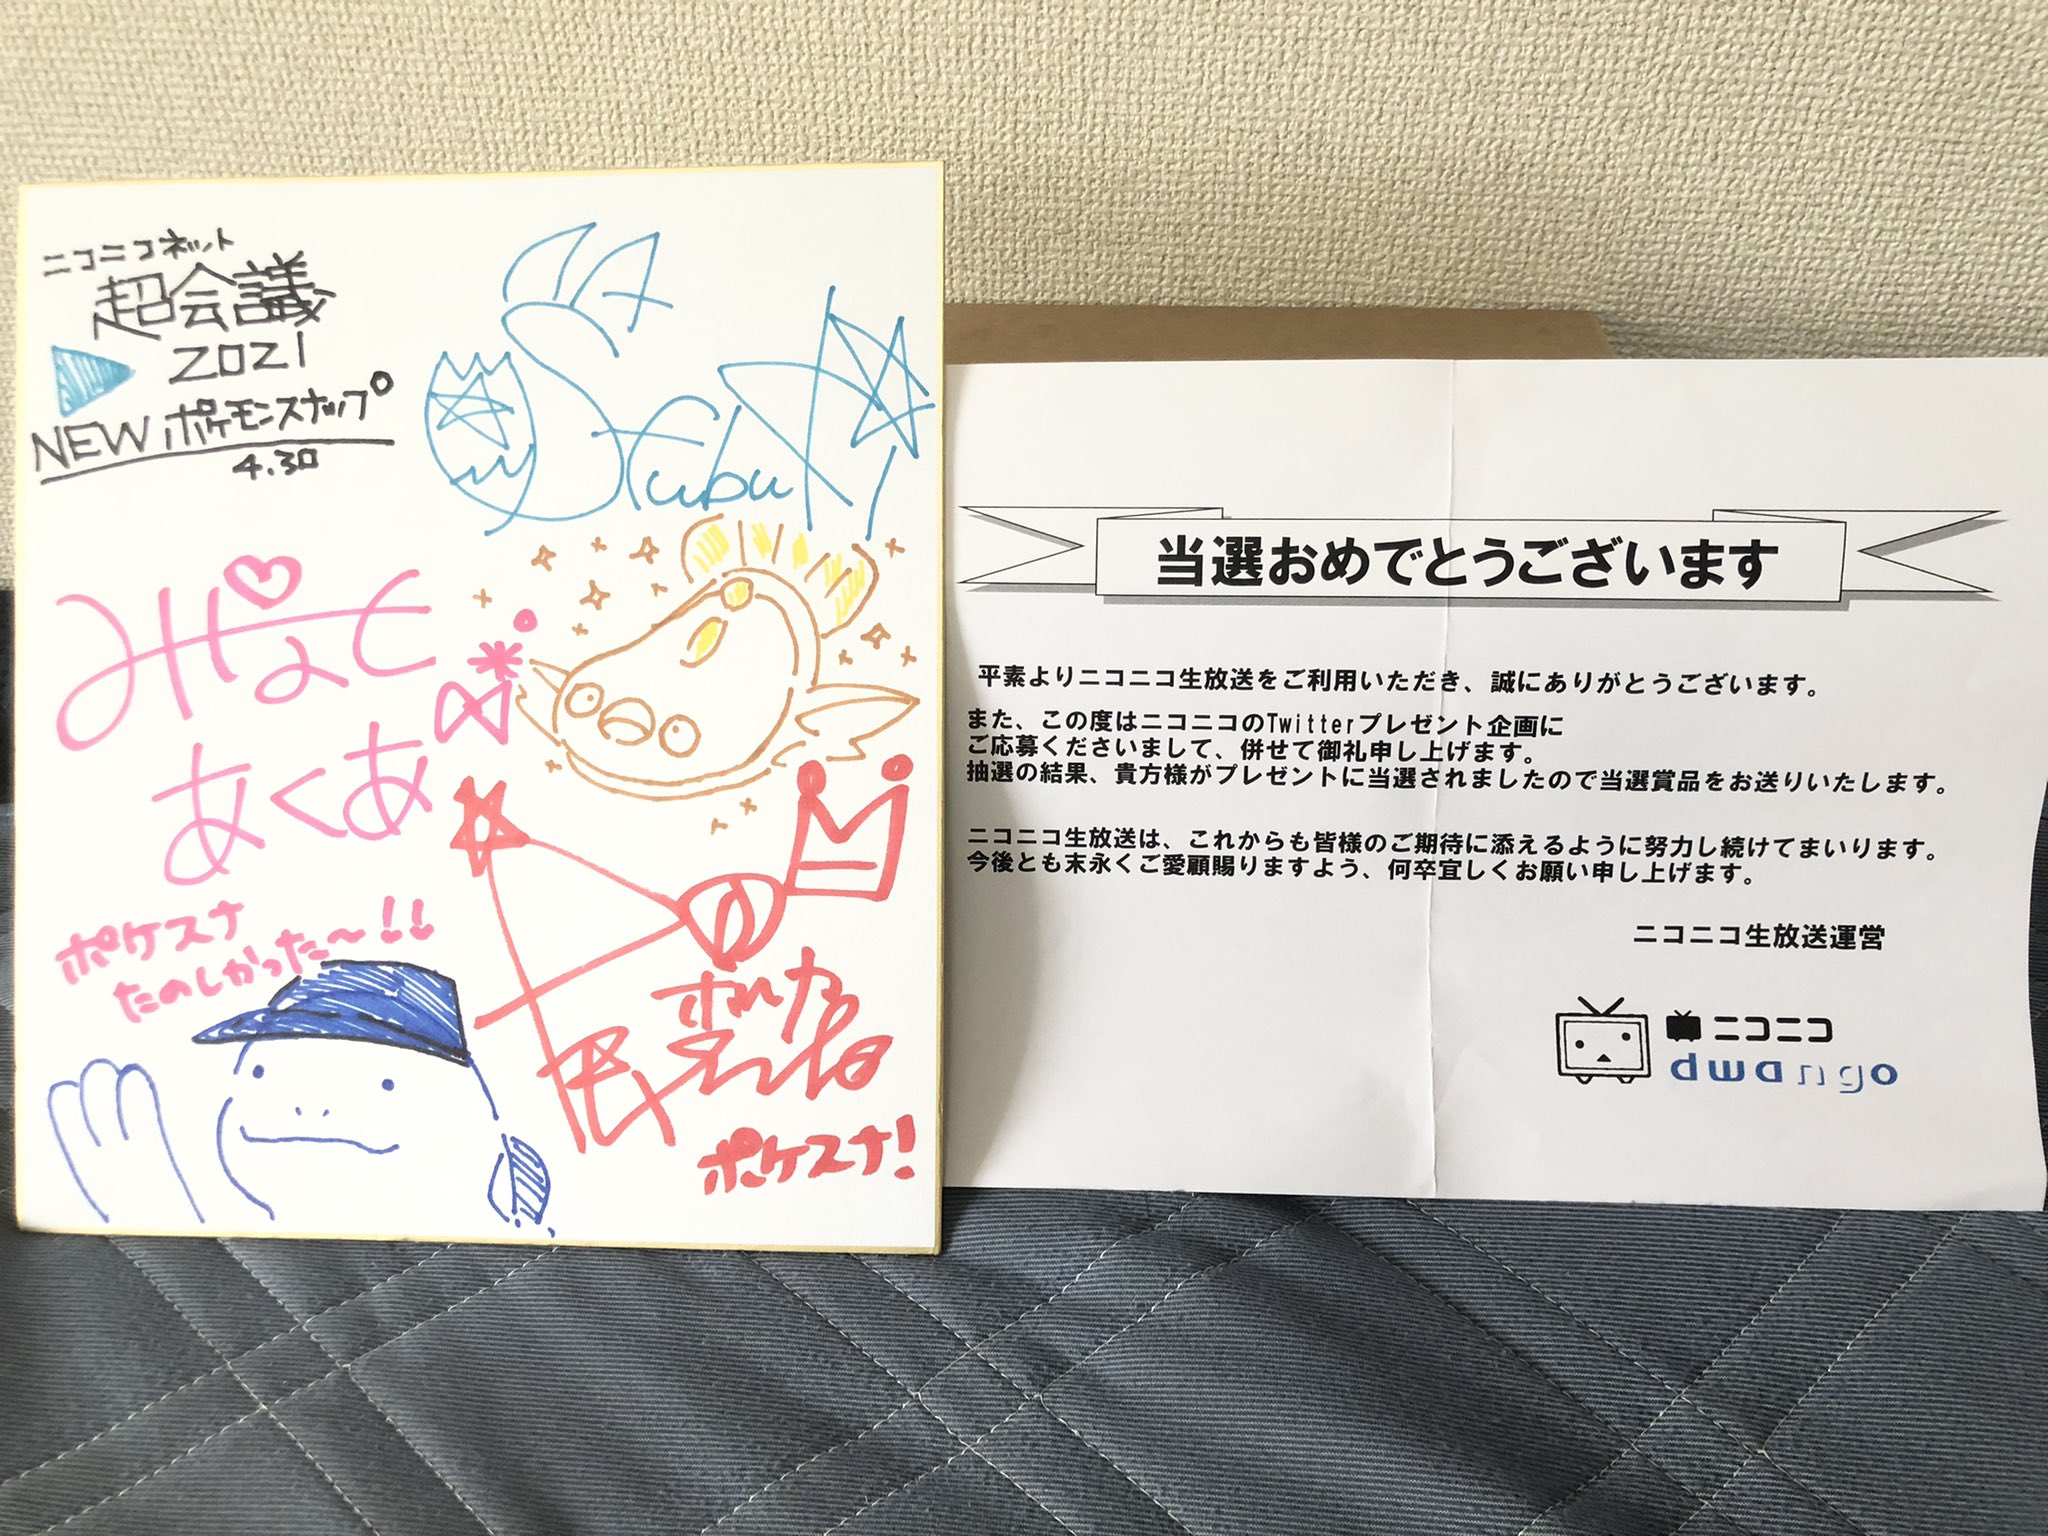 ニコニコネット
超会議
2021
NEWポケモンスナップ
4.30
Fubuki
みなと
あくあ
ポケスナ
たのしかった〜!!
ポケスナ!
当選おめでとうございます
平素よりニコニコ生放送をご利用いただき、誠にありがとうございます。
また、この度はニコニコのTwitterプレゼント企画に
ご応募くださいまして、併せて御礼申し上げます。
抽選の結果、貴方様がプレゼントに当選されましたので当選賞品をお送りいたします。
ニコニコ生放送は、これからも皆様のご期待に添えるように努力し続けてまいります。
今後とも末永くご愛顧賜りますよう、何卒宜しくお願い申し上げます。
ニコニコ生放送運営
ニコニコ
dwango